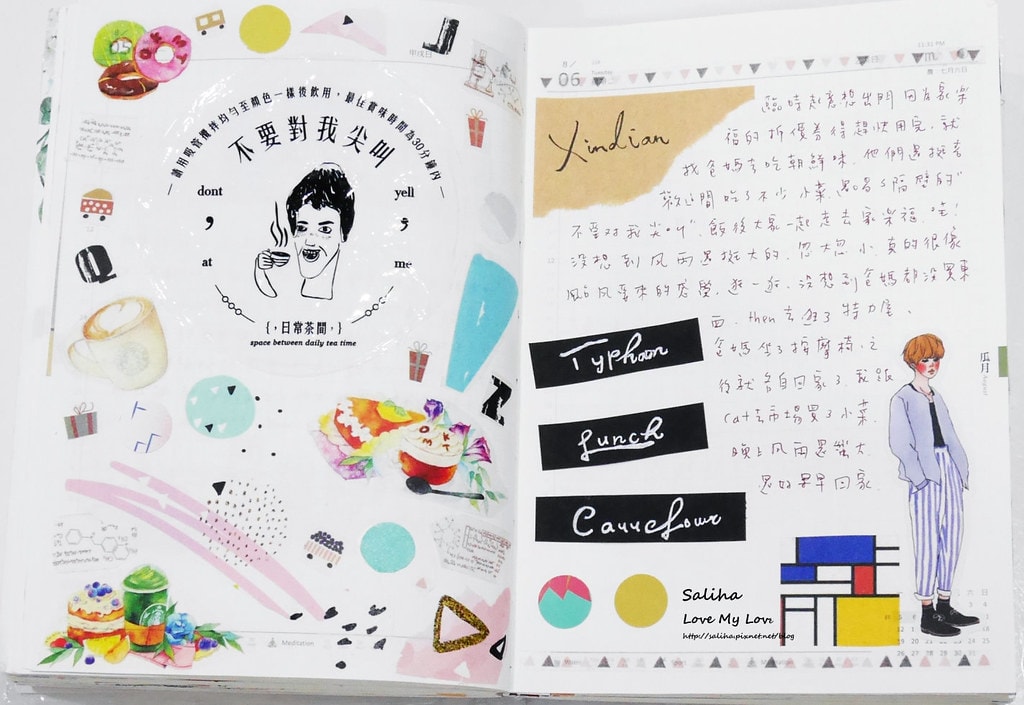 請用吸管攪拌均勻至顏色一樣後飲用，最佳賞味時間為30分鐘內
不要對我尖叫
dont yell
, ,
at me
{,日常茶間,}
space between daily tea time
Meditation
8/
06
Tuesday
11:31 PM
農 七月六日
Xindian
臨時起意想出門 因為家樂
福的折價券得趕快用完, 就
找爸媽去吃朝鮮味. 他們還挺喜
歡, 期間吃了不少小菜. 還喝了隔壁的"
不要對我尖叫". 飯後大家一起走去家樂福. 哇!
沒想到風雨還挺大的, 忽大忽小, 真的很像
颱風要來的感覺. 逛一逛, 沒想到爸媽都沒買東
西. then 去逛了特力屋、
Typhoon
爸媽坐了按摩椅, 之
後就各自回家了. 我跟
Lunch
Cat去市場買了小菜.
晚上風雨還蠻大.
還好早早回家.
Carrefour
瓜月
August
Saliha
Love My Love
http://saliha.pixnet.net/blog